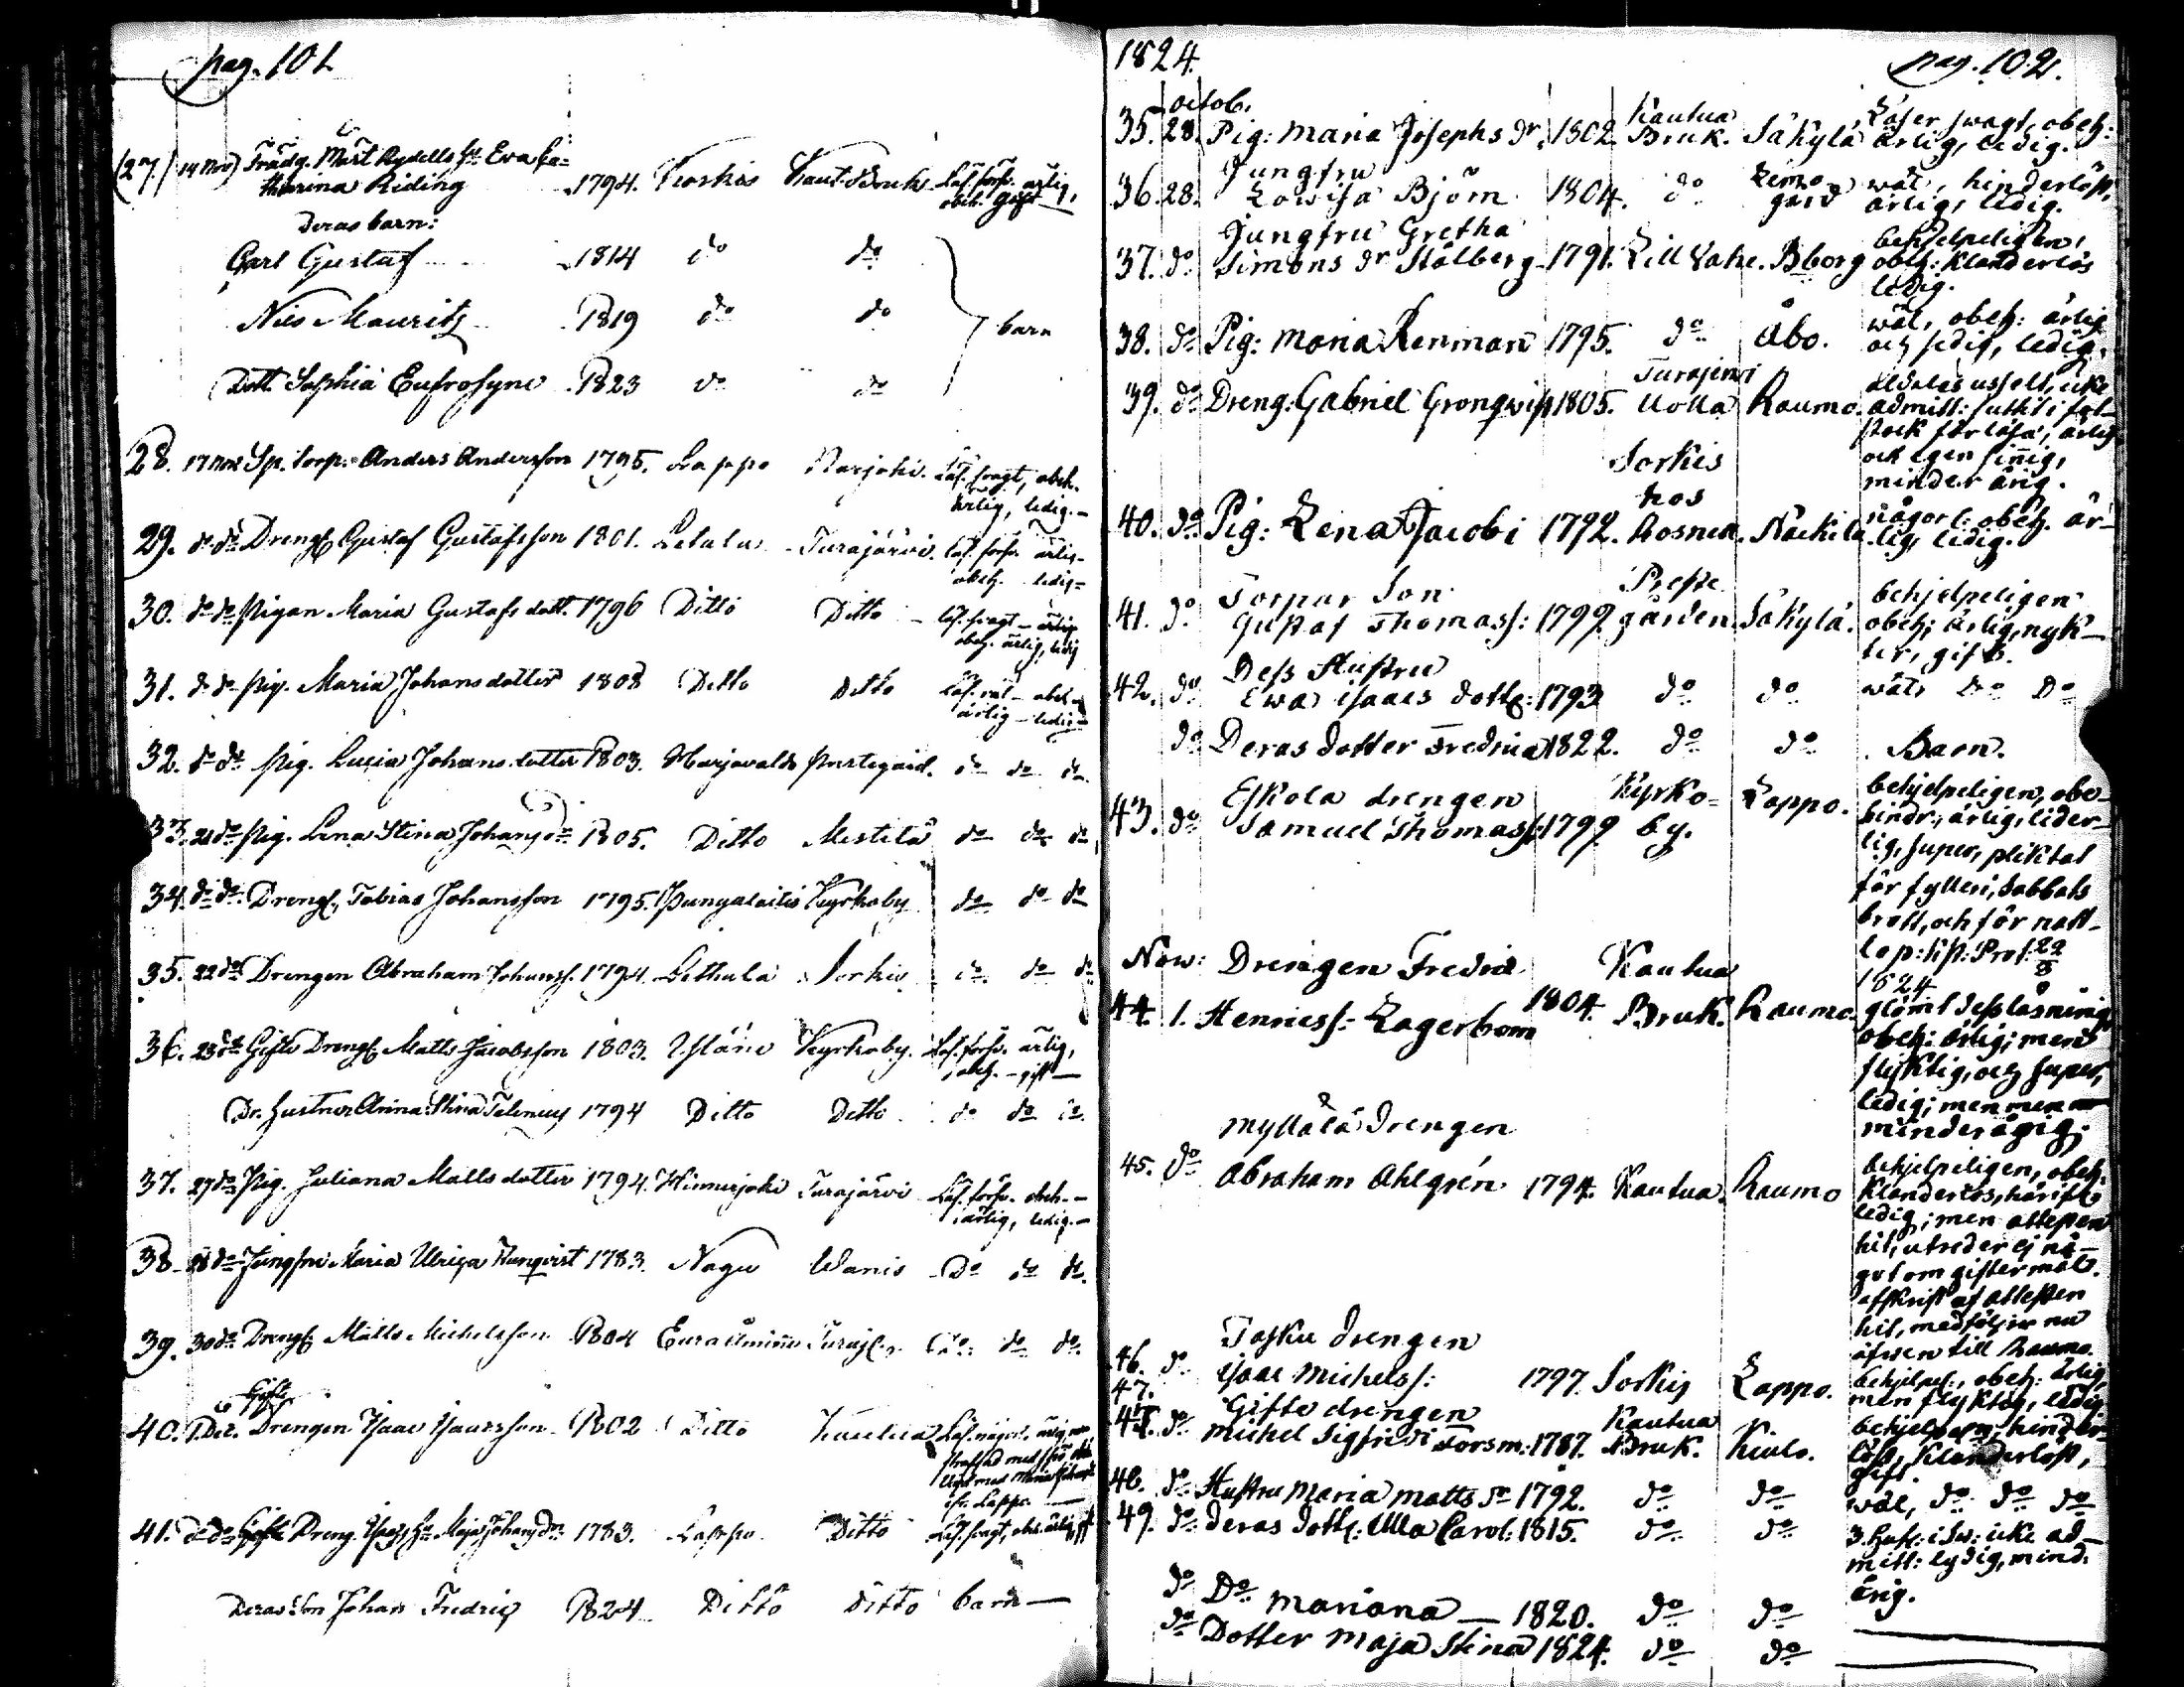 pag. 101
(27) 14 Nov Trädg. Mäst Rydells Hu Ewa Ca=
tharina Riding 1794. Kaut. Bruk Läs. förs. ärlig,
obeh. gift
Deras barn:
Carl Gustaf 1814 do do
Nils Mauritz 1819 do do barn
Dott Sophia Eufrosyne 1823 do do
28. 17 Nov Sp. Torp. Anders Andersson 1795. Lappo Narjoki. Läs. svagt, obeh.
ärlig, ledig.
29. do do Dreng Gustaf Gustafsson 1801. Letala Turajärvi. Läs. förs. ärlig
obeh. ledig
30. do do Pigan Maria Gustafs dott. 1796 Ditto Ditto Läs. svagt
obeh. ärlig, ledig
31. do do Pig. Maria Johans dotter 1808 Ditto Ditto Läs. väl obeh
ärlig ledig
32. do do Pig. Lucia Johans dotter 1803. Harjavalda Prestegård. do do do
33. 21 do Pig. Lena Stina Johans dr 1805. Ditto Mestilä do do do
34. do do Dreng. Tobias Johansson 1795. Pungalaitis Kyrkoby do do do
35. 22 do Drengen Abraham Johanss. 1794. Lethala Sorkis do do do
36. 23 do Gifte Dreng Matts Jacobsson 1803. Ylâne Kyrkoby. Läs. förs. ärlig,
obeh. gift
Dr. hustru Anna Stina 1794 Ditto Ditto do do do
37. 27 do Pig. Juliana Matts dotter 1794. Hinnerjoki Turajärvi Läs. förs. obeh.
ärlig, ledig.
38. 28 do Jungfru Maria Ulrica 1783. Nagu Wanis Do do do
39. 30 do Dreng Matts Michelsson 1804 Euraåminne Turaj. do do do
Gifte
40. 1. Dec. Drengen Isaac Isacsson 1802 Ditto Läs. någorl. ärlig
41. do do Dreng. Hu Maja Johans dr 1783. Lappo Ditto Läs. svagt, obeh. ärlig, gift
Deras Son Johan Fredric 1824 Ditto Ditto barn
1824. pag. 102.
octob.
35. 28. Pig: Maria Josephs dr. 1802. Kautua Bruk. Säkylä Läser swagt, obeh:
ärlig, ledig.
36. 28. Jungfru
Lowisa Björn 1804. do Kemo gård wäl, hinderlöst,
ärlig, ledig.
37. do Jungfru Gretha
Simons dr Stålberg 1791. Lill Vahe. Bborg behjelpeligen,
obeh: klanderlös
ledig.
38. do Pig: Maria Renman 1795. do Åbo. wäl, obeh: ärlig
och sedig, ledig.
39. do Dreng: Gabriel Grongwist 1805. Turajerwi Uotila Raumo. aldeles usselt, icke
admitt: suttit i fot-
stock för läsa, ärlig
och egen sinnig,
minder årig.
40. do Pig: Lena Jacobi 1792. Sorkis
hos
Rosnell. Nackila någorl: obeh. är-
lig, ledig.
41. do Torpar Son
Gustaf Thomass: 1799. Preste
gården. Säkylä. behjelpeligen
obeh; ärlig, nyk-
ter, gift.
42. do Dess Hustru
Ewa Isaacs dotter: 1793 do do wäl, do Do
do Deras dotter Fredrica 1822. do do Barn.
43. do Eskola drengen
Samuel Thomass: 1799 Kyrko=
by. Lappo. behjelpeligen, obe-
hindr., ärlig, lider-
lig, super, pliktat
för fylleri, sabbats
brott, och för natt-
lop: Kp: Prot: 22/8
1824
Now:
44. 1. Drengen Fredric
Henricss: Lagerbom 1804. Kautua
Bruk. Raumo. glömt dess läsning
obeh: ärlig; men
flycktig, och super,
ledig; men
minderårig;
45. do Myllälä drengen
Abraham Ahlgrén 1794. Kautua. Raumo behjelpeligen, obeh.
klanderlös, härifr:
ledig; men attesten
hit, utreder ej nå-
got om giftermål.
afskrift af attesten
hit, medföljer nu
äfwen till Raumo.
46. do Tasku drengen
Isaac Michelss: 1797. Sorkis Lappo. behjelpel:, obeh: ärlig,
men flycktig, ledig.
47. do Gifte drengen
Michel Sigfridi Forsm: 1787. Kautua
Bruk. Kiulo. behjelpeln, hinder-
löst, klanderlöst,
gift.
48. do Hustru Maria Matts dr 1792. do do wäl, do do do
49. do Deras dott: Ulla Carol: 1815. do do icke ad-
mitt: lydig, mind:
årig.
do Do Mariana 1820. do do
do Dotter Maja Stina 1824. do do